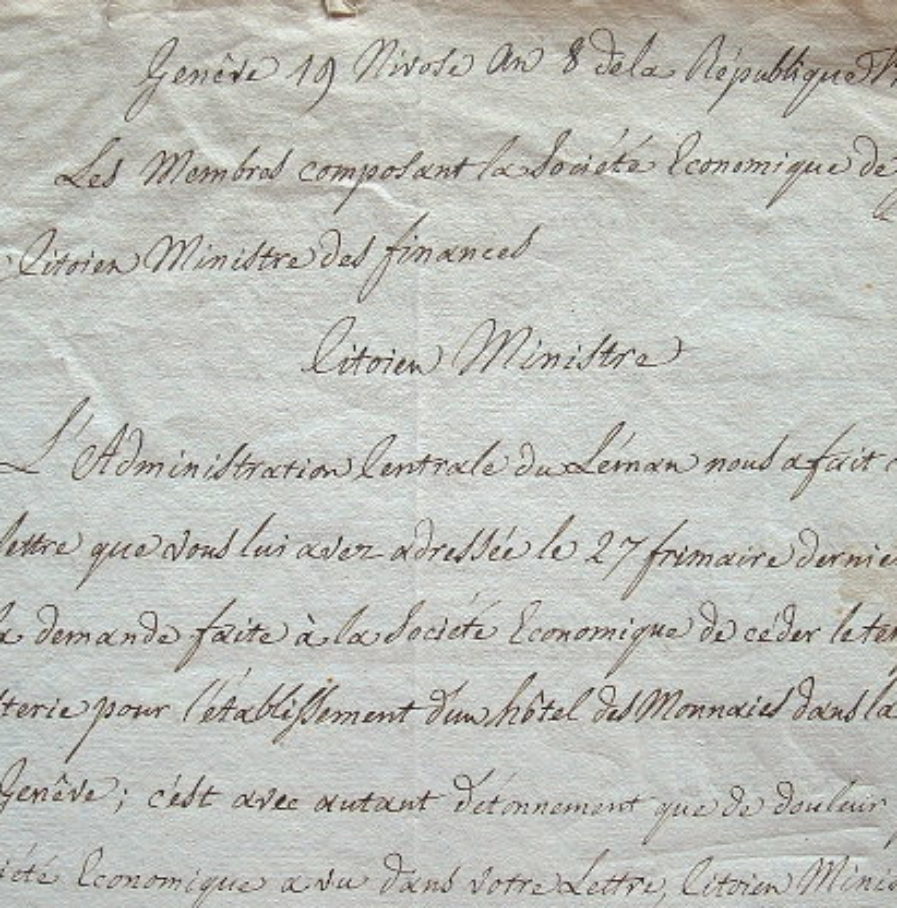 Genêve 19 Nivose An 8 dela République
Les Membres composant la Société Economique de
Citoien Ministre des finances
Citoien Ministre
L'Administration Centrale du Léman nous a fait
lettre que vous lui avez adressée le 27 frimaire dernie
la demande faite à la Société Economique de céder le
terie pour l'établissement d'un hôtel des Monnaies dans la
Genêve; c'est avec autant d'étonnement que de douleur
iété Economique a vu dans votre Lettre, Citoien Minis